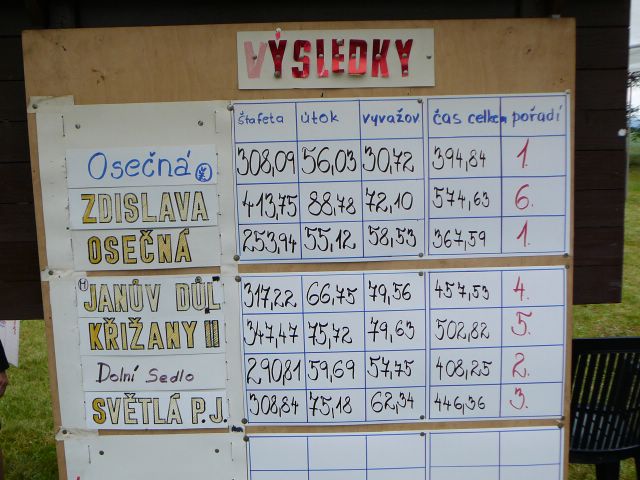 VÝSLEDKY
štafeta útok vyvažov čas celkem pořadí
Osečná 308,09 56,03 30,72 394,84 1.
ZDISLAVA 413,75 88,78 72,10 574,63 6.
OSEČNÁ 253,94 55,12 58,53 367,59 1.
JANŮV DŮL 317,22 66,75 79,56 457,53 4.
KŘIŽANY II 347,47 75,72 79,63 502,82 5.
Dolní Sedlo 290,81 59,69 57,75 408,25 2.
SVĚTLÁ P.J. 308,84 75,18 62,34 446,36 3.